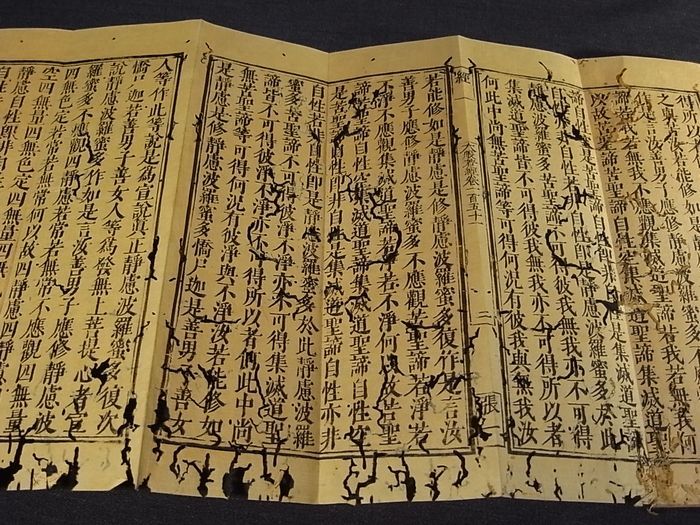 是言汝善男子應修靜慮波羅蜜多不應觀苦聖
諦若我若無我不應觀集滅道聖諦若我若無我
何以故苦聖諦苦聖諦自性空集滅道聖諦集滅道聖
諦自性空是苦聖諦自性即非自性是集滅道聖
諦自性亦非自性若非自性即是靜慮波羅蜜多於此
靜慮波羅蜜多苦聖諦不可得彼我無我亦不可得
集滅道聖諦皆不可得彼我無我亦不可得所以者
何此中尚無苦聖諦等可得何況有彼我與無我汝
經一 大般若經卷一百五十一 三 張一
若能修如是靜慮是修靜慮波羅蜜多復作是言汝
善男子應修靜慮波羅蜜多不應觀苦聖諦若淨若
不淨不應觀集滅道聖諦若淨若不淨何以故苦聖
諦苦聖諦自性空集滅道聖諦集滅道聖諦自性空
是苦聖諦自性即非自性是集滅道聖諦自性亦非
自性若非自性即是靜慮波羅蜜多於此靜慮波羅
蜜多苦聖諦不可得彼淨不淨亦不可得集滅道聖
諦皆不可得彼淨不淨亦不可得所以者何此中尚
無苦聖諦等可得何況有彼淨與不淨汝若能修如
是靜慮是修靜慮波羅蜜多憍尸迦是善男子善女
人等作此等說是爲宣說眞正靜慮波羅蜜多復次
憍尸迦若善男子善女人等爲發無上菩提心者宣
說靜慮波羅蜜多作如是言汝善男子應修靜慮波
羅蜜多不應觀四靜慮若常若無常不應觀四無量
四無色定若常若無常何以故四靜慮四靜慮自性
空四無量四無色定四無量四無色定自性空是四
靜慮自性即非自性是四無量